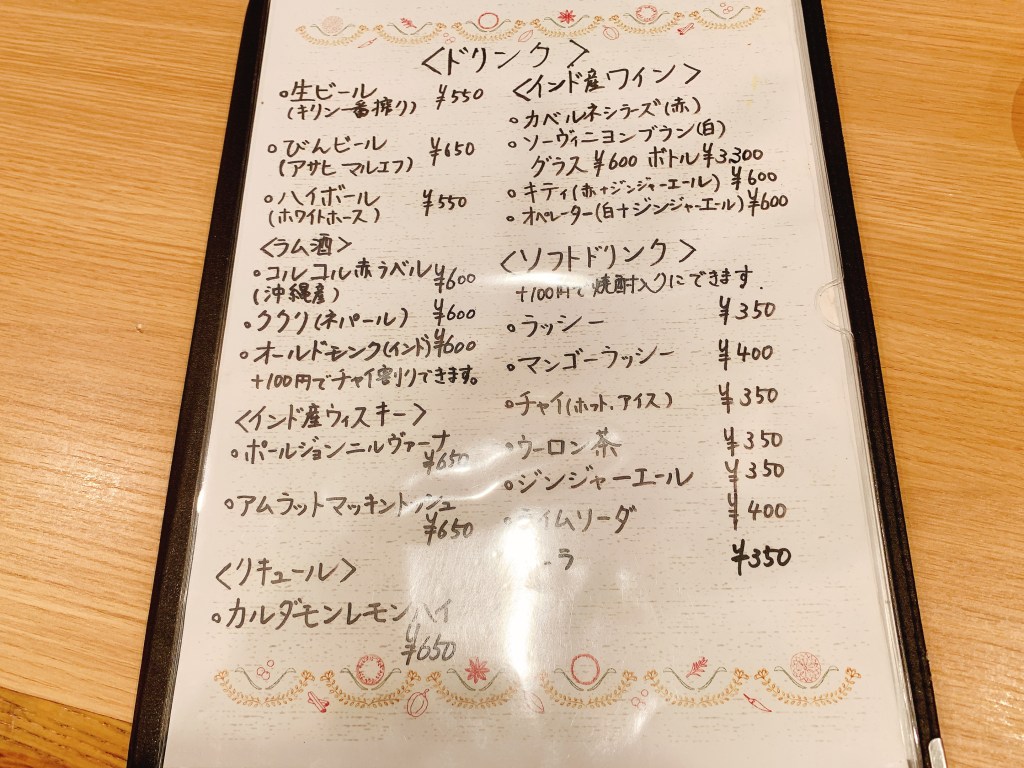 <ドリンク>
○生ビール ¥550
(キリン一番搾り)
○びんビール ¥650
(アサヒ マルエフ)
○ハイボール ¥550
(ホワイトホース)
<ラム酒>
○コルコル赤ラベル ¥600
(沖縄産)
○ククリ(ネパール) ¥600
○オールドモンク(インド) ¥600
+100円でチャイ割りできます。
<インド産ウィスキー>
○ポールジョンニルヴァーナ
¥650
○アムラットマッキントッシュ
¥650
<リキュール>
○カルダモンレモンハイ
¥650
<インド産ワイン>
○カベルネシラーズ(赤)
○ソーヴィニヨンブラン(白)
グラス ¥600 ボトル ¥3,300
○キティ(赤+ジンジャーエール) ¥600
○オペレーター(白+ジンジャーエール) ¥600
<ソフトドリンク>
+100円で焼酎入りにできます.
○ラッシー ¥350
○マンゴーラッシー ¥400
○チャイ(ホット.アイス) ¥350
○ウーロン茶 ¥350
○ジンジャーエール ¥350
ライムソーダ ¥400
ーラ ¥350